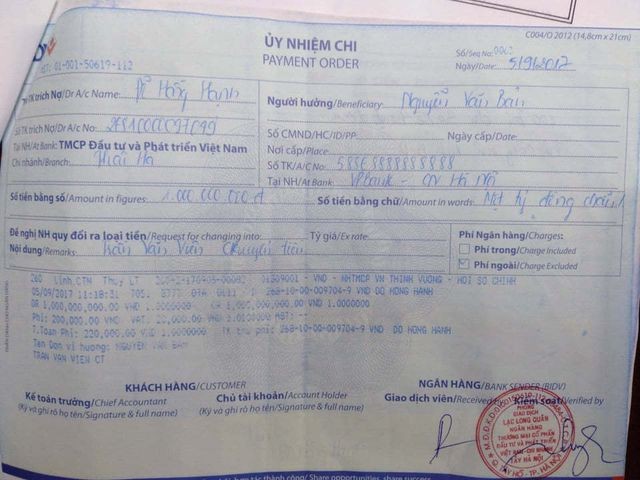 C004/Ɖ 2012 (14,8cm x 21cm)
ỦY NHIỆM CHI
PAYMENT ORDER
Số/Seq No:
Ngày/Date: 5/9/2017
01-001-50619-112
TK trích Nợ/Dr A/c Name: Đỗ Hồng Hạnh
Số TK trích Nợ/Dr A/c No:
Tại NH/At Bank: TMCP Đầu tư và Phát triển Việt Nam
Chi nhánh/Branch: Thái Hà
Người hưởng/Beneficiary: Nguyễn Văn Bản
Số CMND/HC/ID/PP: Ngày cấp/Date:
Nơi cấp/Place:
Số TK/A/C No:
Tại NH/At Bank: VPBank - CN Hà Nội
Số tiền bằng số/Amount in figures: 1.000.000.000đ
Số tiền bằng chữ/Amount in words: Một tỷ đồng chẵn
Đề nghị NH quy đổi ra loại tiền/Request for changing into: Tỷ giá/Ex rate:
Nội dung/Remarks: Trần Văn Viên chuyển tiền
Phí Ngân hàng/Charges:
Phí trong/Charge Included
Phí ngoài/Charge Excluded
Linh.CTM Thuy LT - VND - NHTMCP VN THINH VUONG - HOI SO CHINH
05/09/2017 11:18:31 268-10-00-009704-9 VND DO HONG HANH
DR 1,000,000,000.00 VND 1.0000000 CR 1,000,000,000.00 VND 1.0000000
Phi: 200,000.00 VND VAT: 20,000.00 VND
T.Toan Phi: 220,000.00 VND 1.0000000 TK thu phi: 268-10-00-009704-9 VND DO HONG HANH
Ten Don vi huong: NGUYEN VAN BAN
TRAN VAN VIEN CT
KHÁCH HÀNG/CUSTOMER
NGÂN HÀNG/BANK SENDER (BIDV)
Kế toán trưởng/Chief Accountant
(Ký và ghi rõ họ tên/Signature & full name)
Chủ tài khoản/Account Holder
(Ký và ghi rõ họ tên/Signature & full name)
Giao dịch viên/Received by
Kiểm soát/Verified by
PHÒNG
GIAO DỊCH
LẠC LONG QUÂN
NGÂN HÀNG
THƯƠNG MẠI CỔ PHẦN
ĐẦU TƯ VÀ PHÁT TRIỂN
VIỆT NAM-CHI NHÁNH
TÂY HÀ NỘI
Q. TÂY HỒ - TP. HÀ NỘI
hợp tác thành công/ Share opportunities, share success